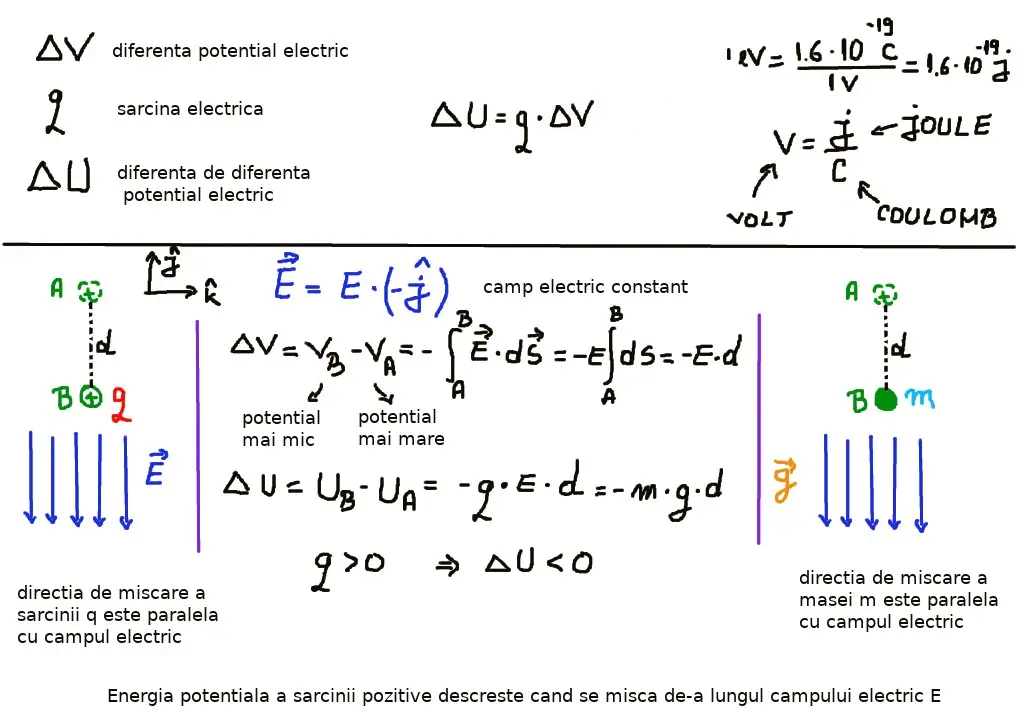 ΔV diferenta potential electric
q sarcina electrica
ΔU diferenta de diferenta
potential electric
ΔU = q · ΔV
1eV = 1.6 · 10^-19 C / 1V = 1.6 · 10^-19 J
V = J / C
← JOULE
VOLT
COULOMB
ĵ
k̂
A
d
B q
E⃗
E⃗ = E · (-ĵ) camp electric constant
ΔV = V_B - V_A = - ∫_A^B E⃗ · dS⃗ = -E ∫_A^B dS = -E·d
potential
mai mic
potential
mai mare
ΔU = U_B - U_A = -q · E · d = -m · g · d
q > 0 ⇒ ΔU < 0
directia de miscare a
sarcinii q este paralela
cu campul electric
A
d
B m
g⃗
directia de miscare a
masei m este paralela
cu campul electric
Energia potentiala a sarcinii pozitive descreste cand se misca de-a lungul campului electric E